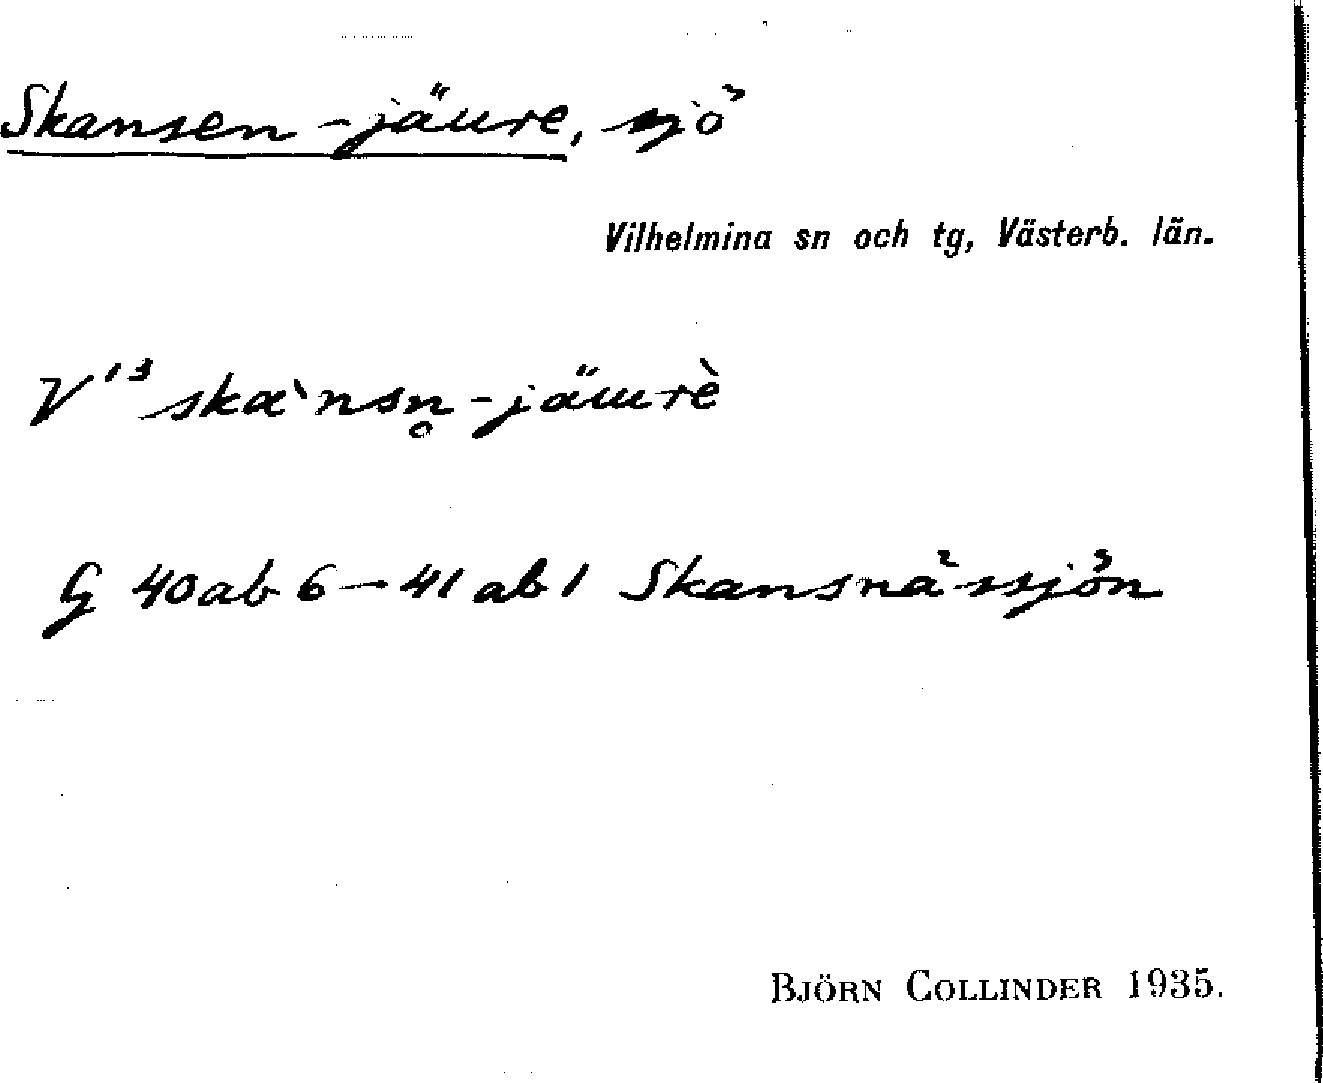 Skansen-jäure, sjö
Vilhelmina sn och tg, Västerb. län.
V¹³ skα`nsn̥-jäurè
G 40ab6–41ab1 Skansnässjön
BJÖRN COLLINDER 1935.